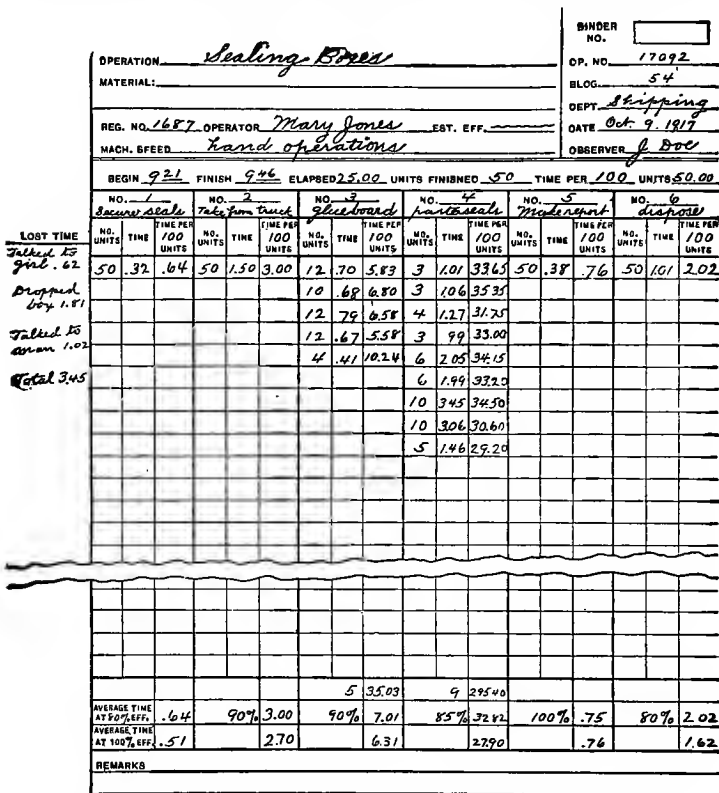 BINDER NO.
OPERATION Sealing Boxes OP. NO. 17092
MATERIAL: BLOG. 54
DEPT. Shipping
REG. NO. 1687 OPERATOR Mary Jones EST. EFF. DATE Oct. 9. 1917
MACH. SPEED hand operations OBSERVER J. Doe
BEGIN 9 21 FINISH 9 46 ELAPSED 25.00 UNITS FINISHED 50 TIME PER 100 UNITS 50.00
NO. 1 NO. 2 NO. 3 NO. 4 NO. 5 NO. 6
Secure seals Take from truck glue board paste seals Make report dispose
LOST TIME NO. UNITS TIME TIME PER 100 UNITS NO. UNITS TIME TIME PER 100 UNITS NO. UNITS TIME TIME PER 100 UNITS NO. UNITS TIME TIME PER 100 UNITS NO. UNITS TIME TIME PER 100 UNITS NO. UNITS TIME TIME PER 100 UNITS
Talked to
girl .62 50 .32 .64 50 1.50 3.00 12 .70 5.83 3 1.01 33.65 50 .38 .76 50 1.01 2.02
Dropped
box 1.81 10 .68 6.80 3 1.06 35.35
12 79 6.58 4 1.27 31.75
Talked to
man 1.02 12 .67 5.58 3 99 33.00
4 .41 10.24 6 2.05 34.15
Total 3.45 6 1.99 33.20
10 3.45 34.50
10 3.06 30.60
5 1.46 29.20
5 35.03 9 295.40
AVERAGE TIME AT 80% EFF. .64 90% 3.00 90% 7.01 85% 32.82 100% .75 80% 2.02
AVERAGE TIME AT 100% EFF. .51 2.70 6.31 27.90 .76 1.62
REMARKS